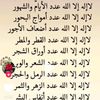 لاإله إلا الله عدد الأيام والشهور
لاإله إلا الله عدد أمواج البحور
لاإله إلا الله عدد أضعاف الأجور
لاإله إلا الله عدد القطر والمطر
لاإله إلا الله عدد أوراق الشجر
لاإله إلا الله عدد الشعر والوبر
لاإله إلا الله عدد الرمل والحجر
لاإله إلا الله عدد الزهر والثمر
لاإله إلا الله عدد أنفاس البشر